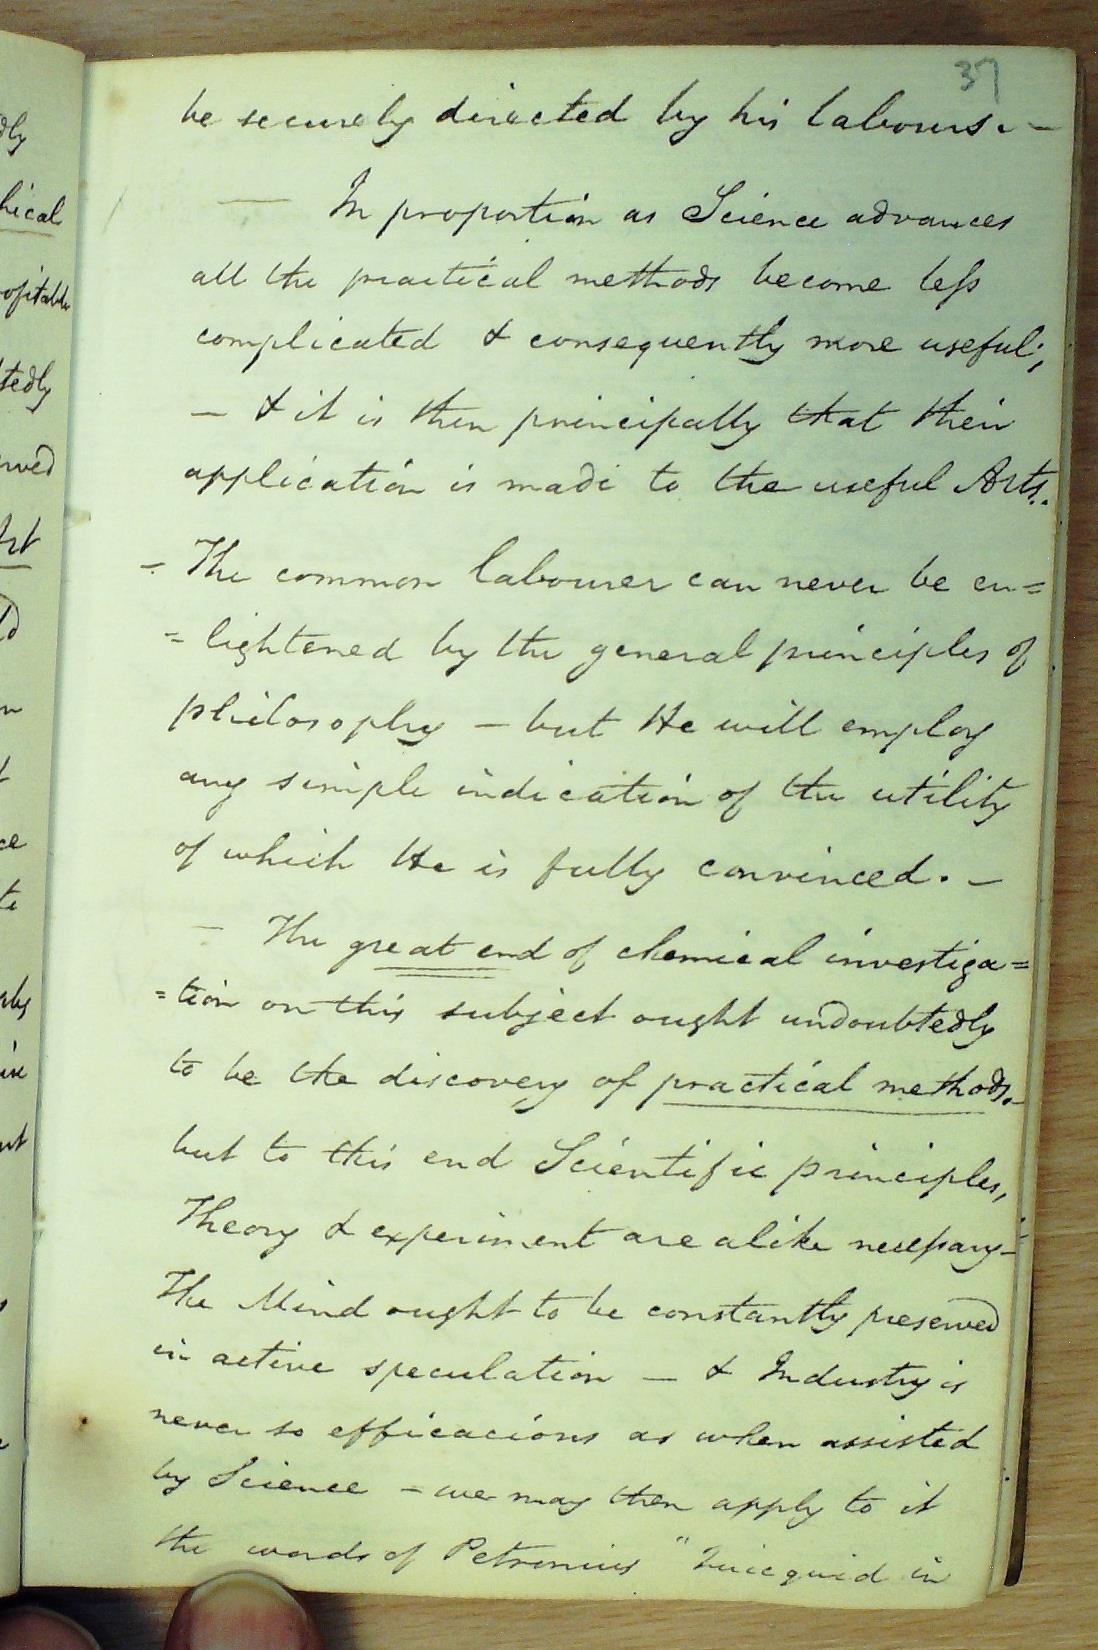 37
be securely directed by his labours. -
— In proportion as Science advances
all the practical methods become less
complicated & consequently more useful;
— & it is then principally that their
application is made to the useful Arts.
- The common labourer can never be en=
=lightened by the general principles of
philosophy — but He will employ
any simple indication of the utility
of which He is fully convinced. —
— The great end of chemical investiga=
=tion on this subject ought undoubtedly
to be the discovery of practical methods.
but to this end Scientific principles,
Theory & experiment are alike necessary —
The Mind ought to be constantly preserved
in active speculation — & Industry is
never so efficacious as when assisted
by Science — we may then apply to it
the words of Petronius "Quicquid in